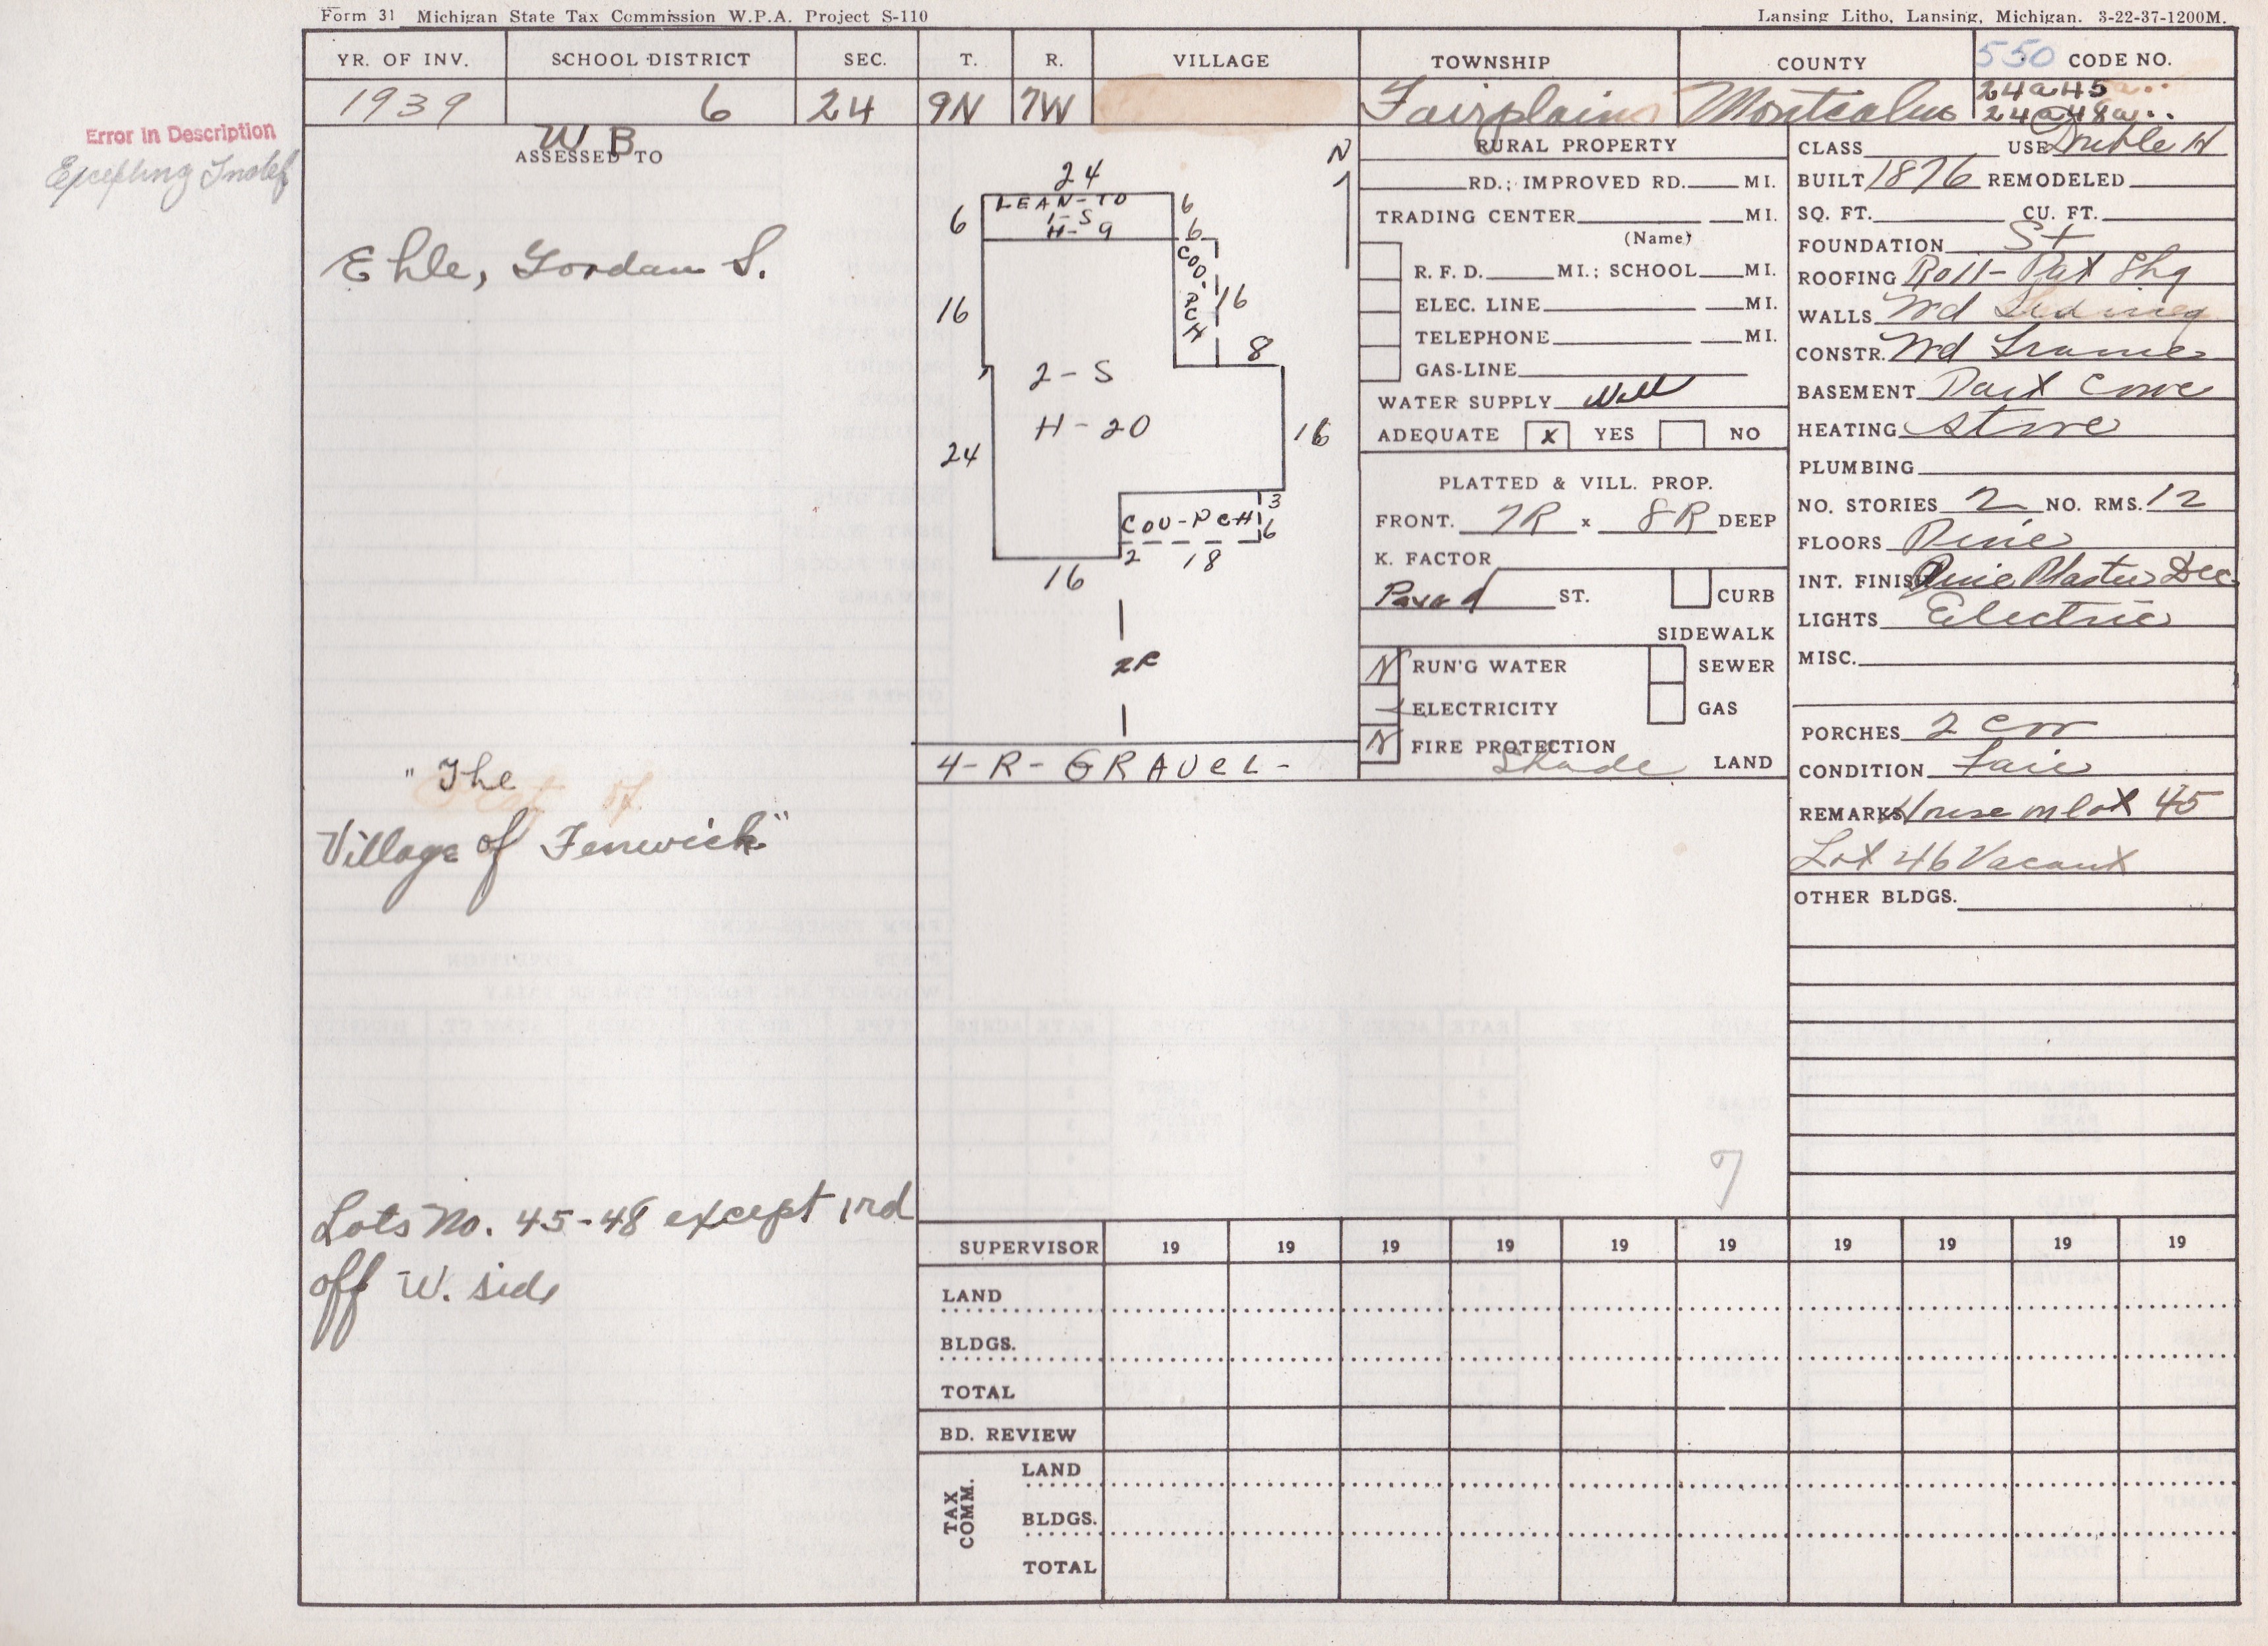 Form 31 Michigan State Tax Commission W.P.A. Project S-110
Lansing Litho, Lansing, Michigan. 3-22-37-1200M.
YR. OF INV. SCHOOL DISTRICT SEC. T. R. VILLAGE TOWNSHIP COUNTY 550 CODE NO.
1939 6 24 9N 7W Fairplain Montcalm 24a45
24a48a..
Error in Description
Excepting Indef
W B
ASSESSED TO
Ehle, Gordan S.
"The
Village of Fenwick"
Lots No. 45-48 except 1rd
off W. side
N
24
LEAN-TO
1-S
H-9
6
6
6
COV' PCH
16
16
8
2-S
H-20
24
16
3
COV-PCH
6
2
18
16
2R
4-R-GRAVEL-
RURAL PROPERTY
RD.; IMPROVED RD. MI.
TRADING CENTER MI.
(Name)
R. F. D. MI.; SCHOOL MI.
ELEC. LINE MI.
TELEPHONE MI.
GAS-LINE
WATER SUPPLY Well
ADEQUATE x YES NO
PLATTED & VILL. PROP.
FRONT. 7R x 8R DEEP
K. FACTOR
Paved ST. CURB
SIDEWALK
N RUN'G WATER SEWER
ELECTRICITY GAS
N FIRE PROTECTION
Shade LAND
CLASS USE Double H
BUILT 1876 REMODELED
SQ. FT. CU. FT.
FOUNDATION St
ROOFING Roll-Pat Shg
WALLS Wd Siding
CONSTR. Wd Frame
BASEMENT Part Conc
HEATING Stove
PLUMBING
NO. STORIES 2 NO. RMS. 12
FLOORS Pine
INT. FINISH Pine Plaster Dec
LIGHTS Electric
MISC.
PORCHES 2 Cov
CONDITION Fair
REMARKS House on lot 45
Lot 46 Vacant
OTHER BLDGS.
7
SUPERVISOR 19 19 19 19 19 19 19 19 19 19
LAND
BLDGS.
TOTAL
BD. REVIEW
TAX COMM.
LAND
BLDGS.
TOTAL